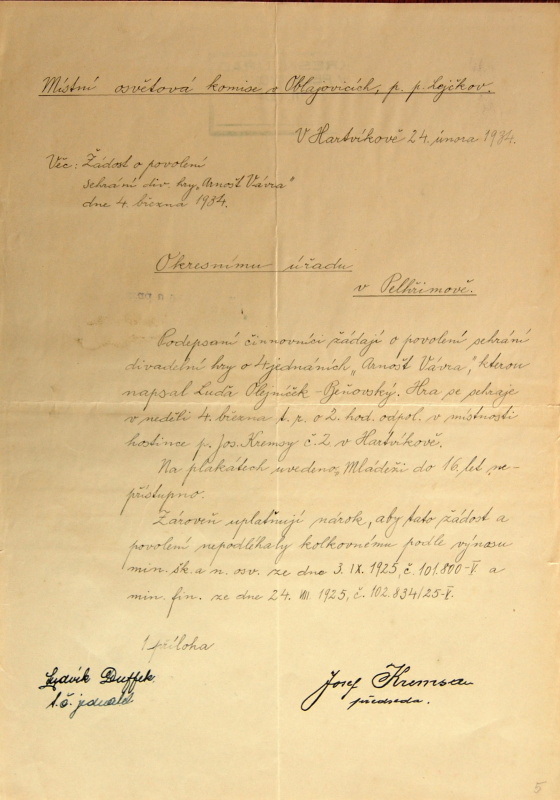 Místní osvětová komise v Oblajovicích, p. p. Lejčkov.
V Hartvíkově 24. února 1934.
Věc: Žádost o povolení
sehrání div. hry „Arnošt Vávra"
dne 4. března 1934.
Okresnímu úřadu
v Pelhřimově.
Podepsaní činovníci žádají o povolení sehrání
divadelní hry o 4 jednáních „Arnošt Vávra", kterou
napsal Luďa Olejníček-Beňovský. Hra se sehraje
v neděli 4. března t. r. o 2. hod. odpol. v místnosti
hostince p. Jos. Kremsy č. 2 v Hartvíkově.
Na plakátech uvedeno „Mládeži do 16 let ne-
přístupno.
Zároveň uplatňují nárok, aby tato žádost a
povolení nepodléhaly kolkovnému podle výnosu
min. šk. a n. osv. ze dne 3. IX. 1925, č. 101.800-V a
min. fin. ze dne 24. VII. 1925, č. 102.834/25-V.
1 příloha
Ludvík Duffek
t. č. jednatel
Josef Kremsa
předseda.
5